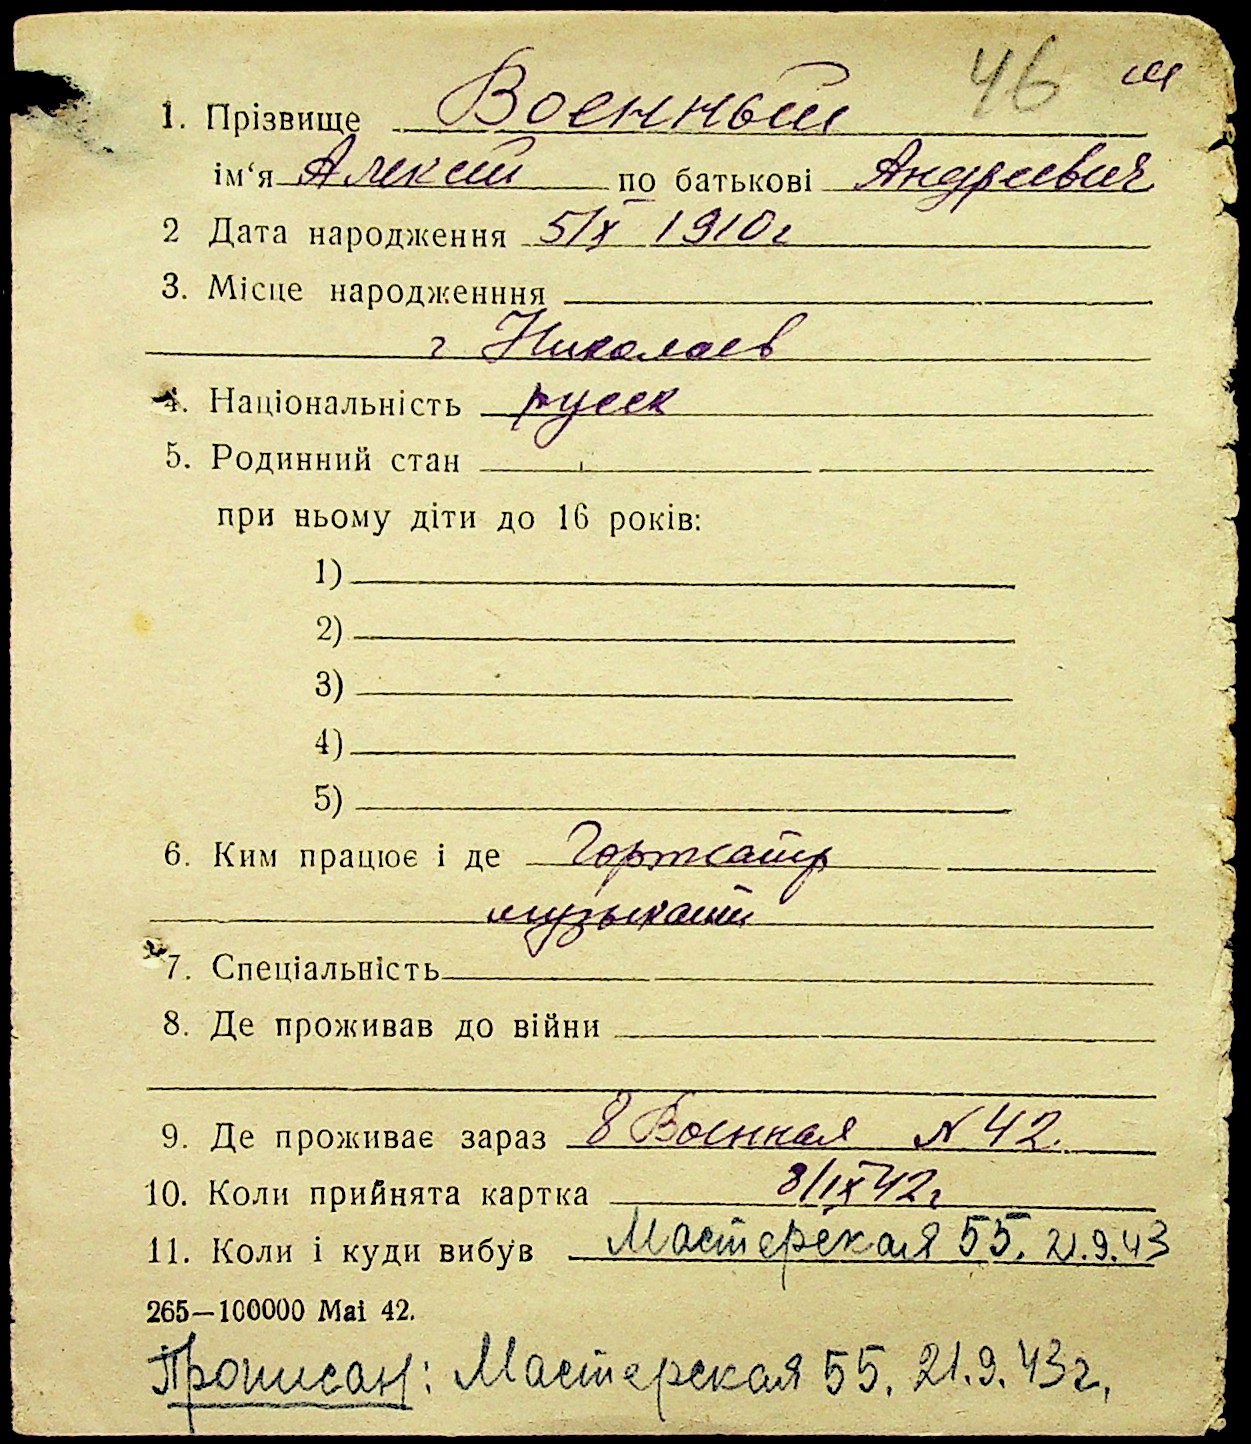 46 м
1. Прізвище Военный
ім‘я Алексей по батькові Андреевич
2 Дата народження 5/X 1910 г
3. Місце народженння
г Николаев
4. Національність русск
5. Родинний стан
при ньому діти до 16 років:
1)
2)
3)
4)
5)
6. Ким працює і де Гортеатр
музыкант
7. Спеціальність
8. Де проживав до війни
9. Де проживає зараз 8 Военная N 42.
10. Коли прийнята картка 8/IX 42 г
11. Коли і куди вибув Мастерская 55. 21.9.43
265—100000 Mai 42.
Прописан: Мастерская 55. 21.9.43 г.